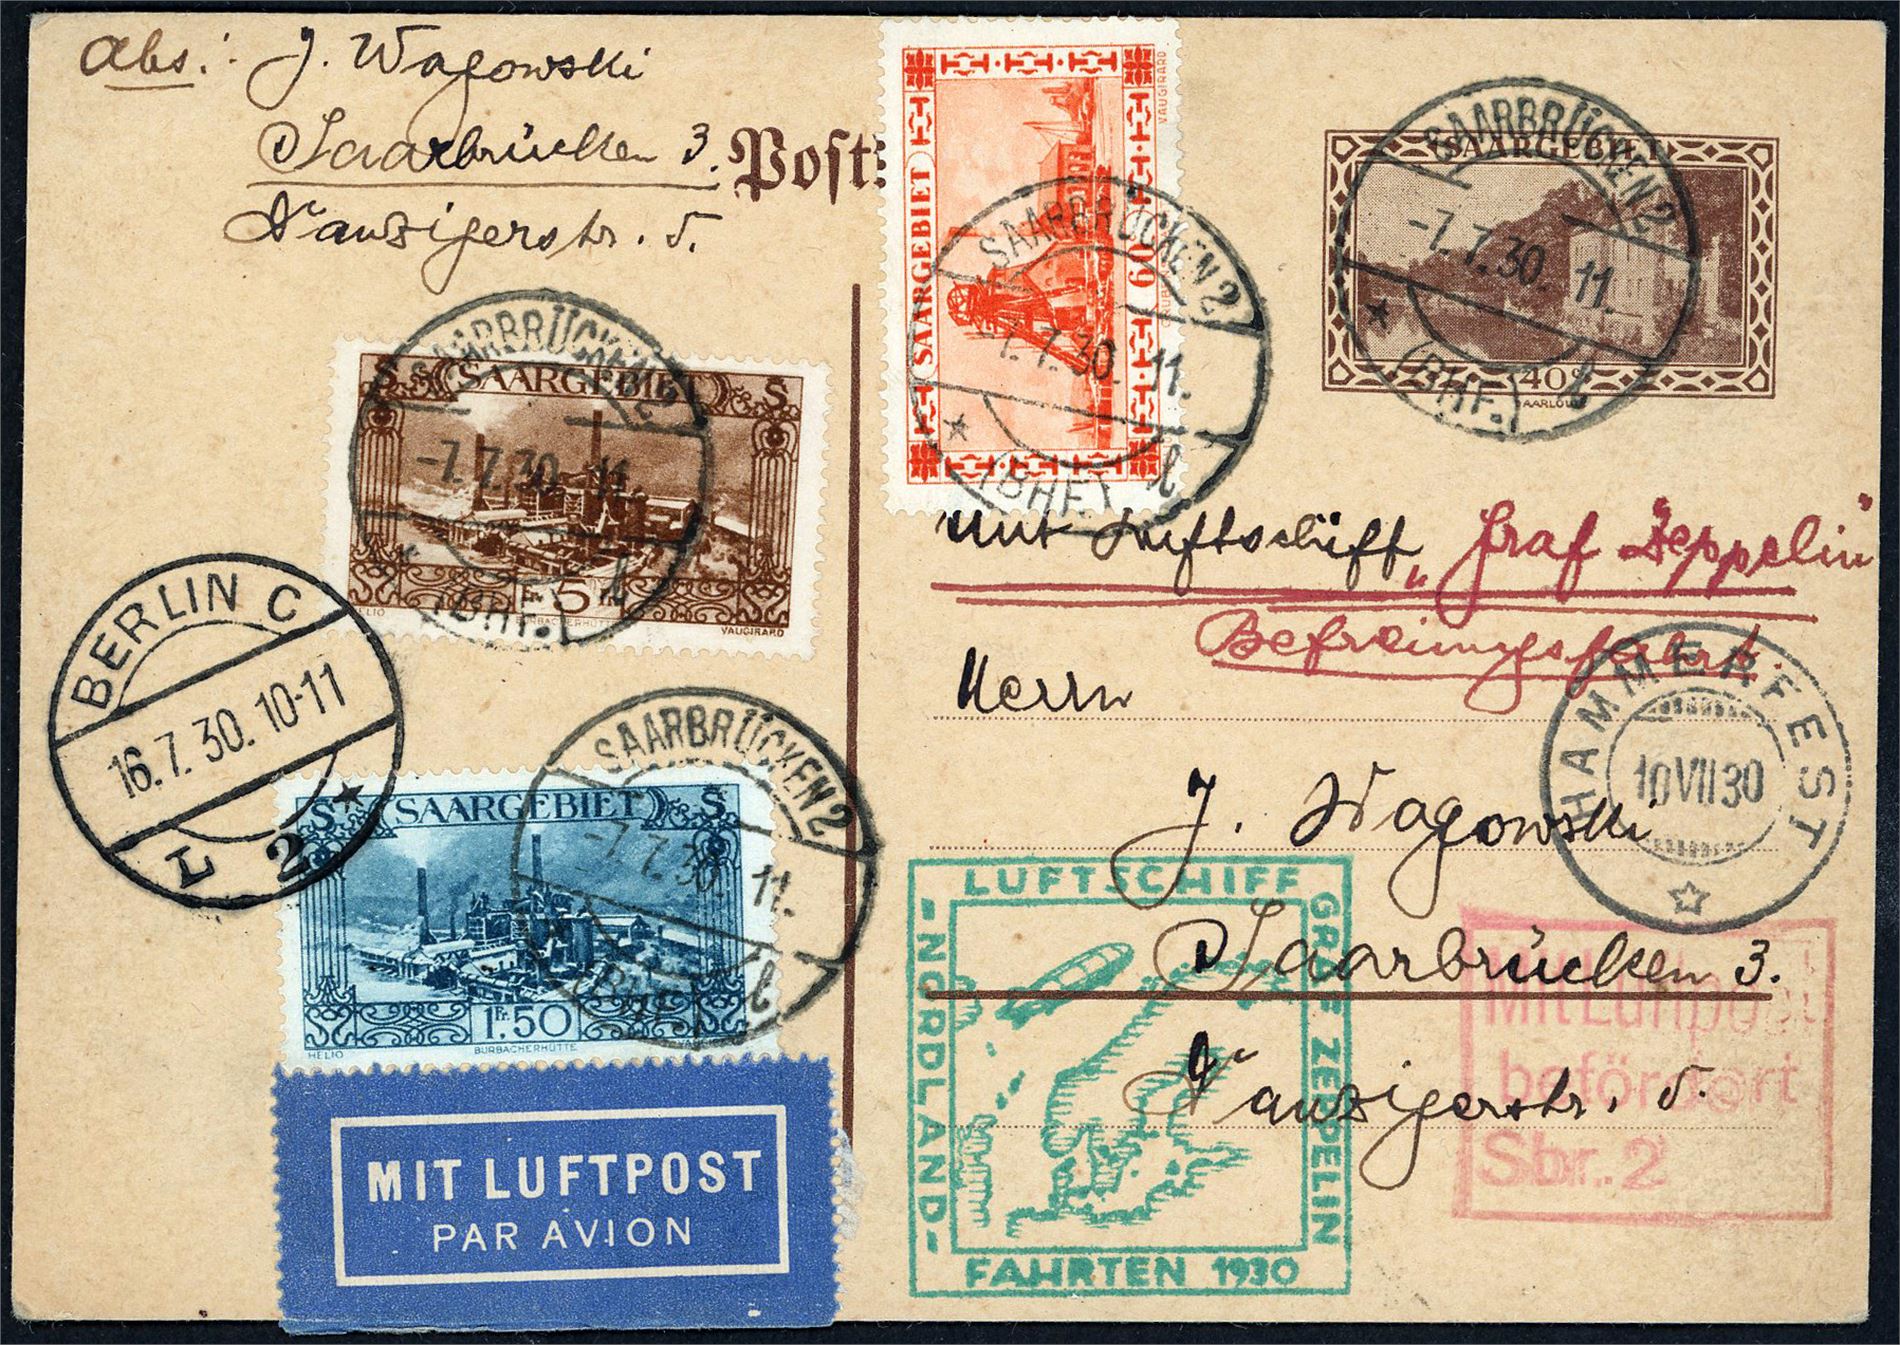 Abs: J. Wagowski
Saarbrücken 3.
Danzigerstr. 5.
Post
SAARGEBIET
60
VAUGIRARD
SAARBRÜCKEN 2
-7.7.30. 11.
* (BHF.) l
SAARGEBIET
40
SAARLOUIS
SAARBRÜCKEN 2
-7.7.30. 11.
* (BHF.) l
S SAARGEBIET S
5 Fr.
HELIO BURBACHERHÜTTE VAUGIRARD
SAARBRÜCKEN 2
-7.7.30 11.
* (BHF.) l
BERLIN C
16.7.30. 10-11
L 2 *
S SAARGEBIET S
1 Fr. 50
HELIO BURBACHERHÜTTE
SAARBRÜCKEN 2
-7.7.30. 11.
(BHF.) l
MIT LUFTPOST
PAR AVION
Mit Luftschiff „Graf Zeppelin"
Befreiungsfahrt.
Herrn
J. Wagowski
Saarbrücken 3.
Danzigerstr. 5.
HAMMERFEST
10 VII 30
LUFTSCHIFF
GRAF ZEPPELIN
-NORDLAND-
FAHRTEN 1930
Mit Luftpost
befördert
Sbr. 2